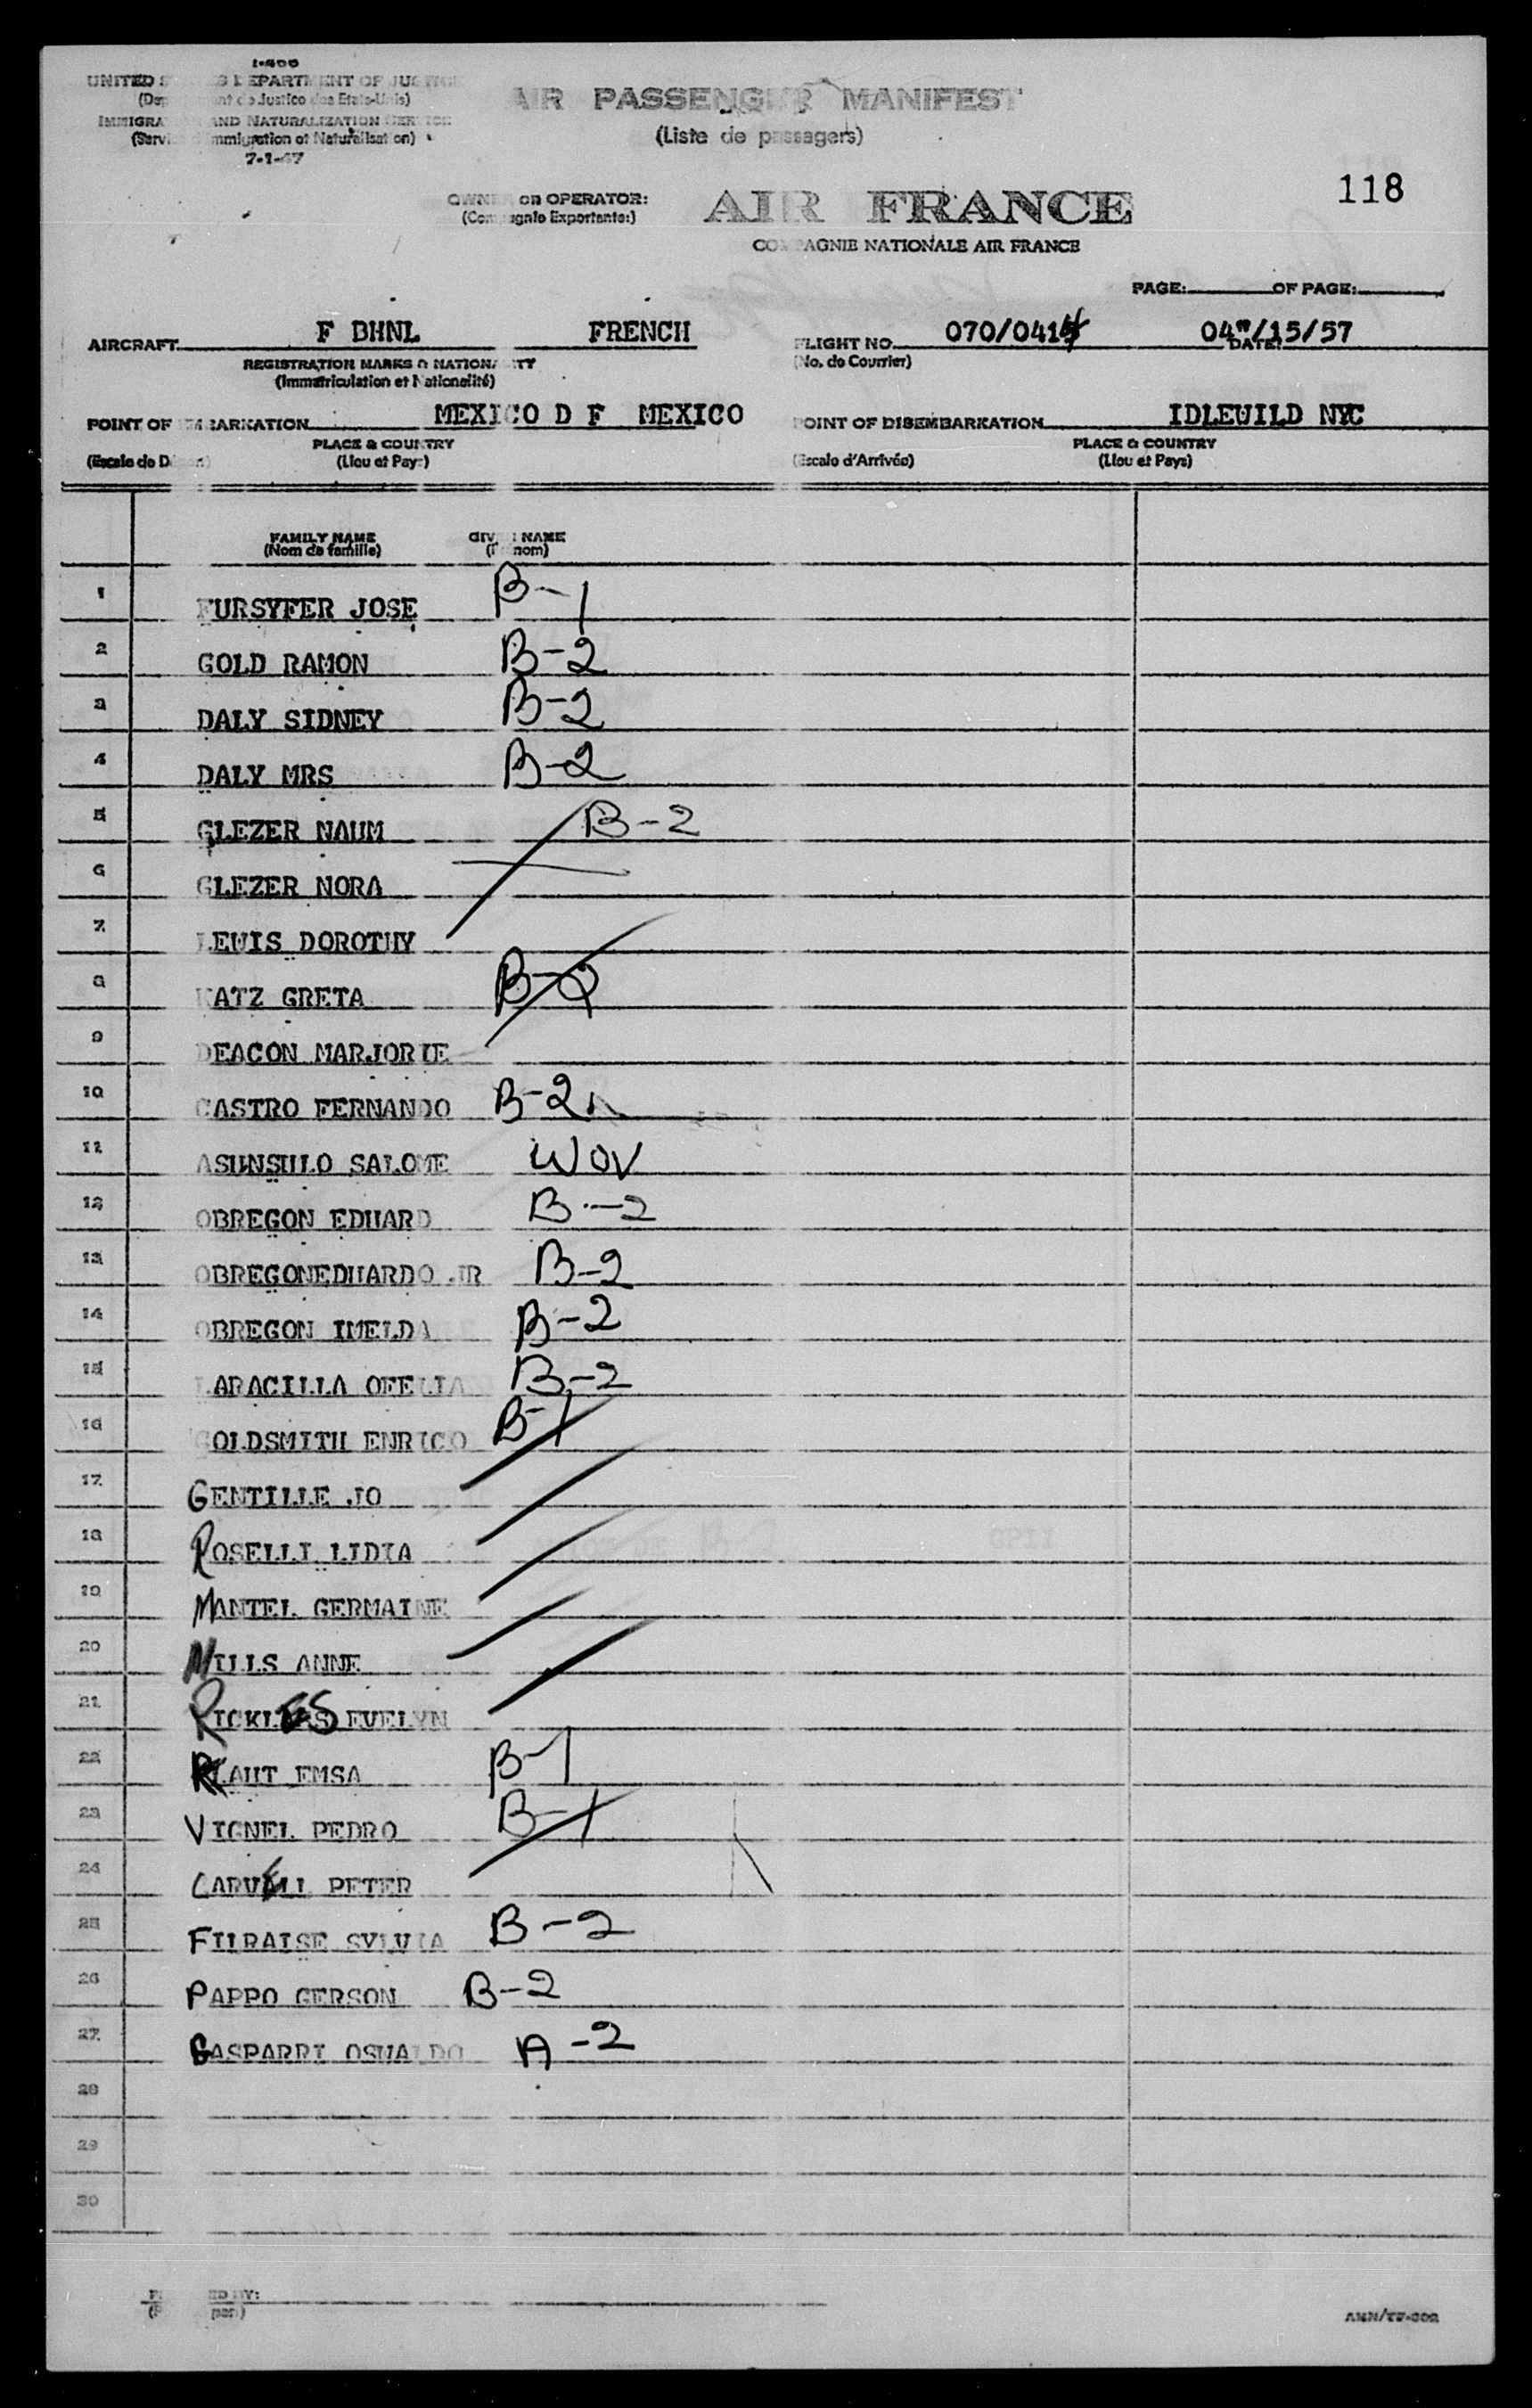 I-466
UNITED S ES DEPARTMENT OF JUSTICE
(Dep nt de Justice des Etats-Unis)
IMMIGRA AND NATURALIZATION SERVICE
(Servi mmigration et Naturalisation)
7-1-47
AIR PASSENGER MANIFEST
(Liste de passagers)
118
OWNER OR OPERATOR: AIR FRANCE
(Compagnie Exportante:)
COMPAGNIE NATIONALE AIR FRANCE
PAGE: OF PAGE:
AIRCRAFT F BHNL FRENCH FLIGHT NO. 070/0414 04/15/57
DATE:
REGISTRATION MARKS & NATIONALITY (No. de Courrier)
(Immatriculation et Nationalité)
POINT OF EMBARKATION MEXICO D F MEXICO POINT OF DISEMBARKATION IDLEWILD NYC
PLACE & COUNTRY PLACE & COUNTRY
(Escale de D ) (Lieu et Pays) (Escale d'Arrivée) (Lieu et Pays)
FAMILY NAME GIVEN NAME
(Nom de famille) (Prenom)
1 FURSYFER JOSE B-1
2 GOLD RAMON B-2
3 DALY SIDNEY B-2
4 DALY MRS B-2
5 GLEZER NAUM B-2
6 GLEZER NORA
7 LEWIS DOROTHY
8 KATZ GRETA B-2
9 DEACON MARJORIE
10 CASTRO FERNANDO B-2
11 ASUNSULO SALOME WOV
12 OBREGON EDUARD B-2
13 OBREGONEDUARDO JR B-2
14 OBREGON IMELDA B-2
15 LARACILLA OFELIA B-2
16 GOLDSMITH ENRICO B-1
17 GENTILLE JO
18 ROSELLI LIDIA
19 MANTEL GERMAINE
20 MILLS ANNE
21 RICKLES EVELYN
22 EMSA B-1
23 VIGNEL PEDRO B-1
24 CARVELL PETER
25 FILRAISE SYLVIA B-2
26 PAPPO GERSON B-2
27 GASPARRI OSWALDO A-2
28
29
30